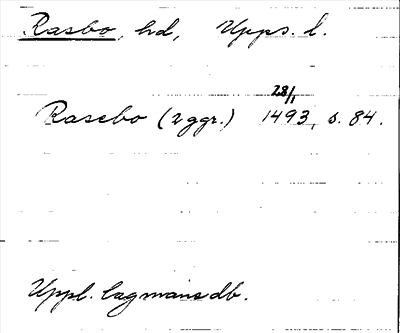 Rasbo, hd, Upps. l.
28/1
Rasebo (2ggr.) 1493, s. 84.
Uppl. lagmansdb.